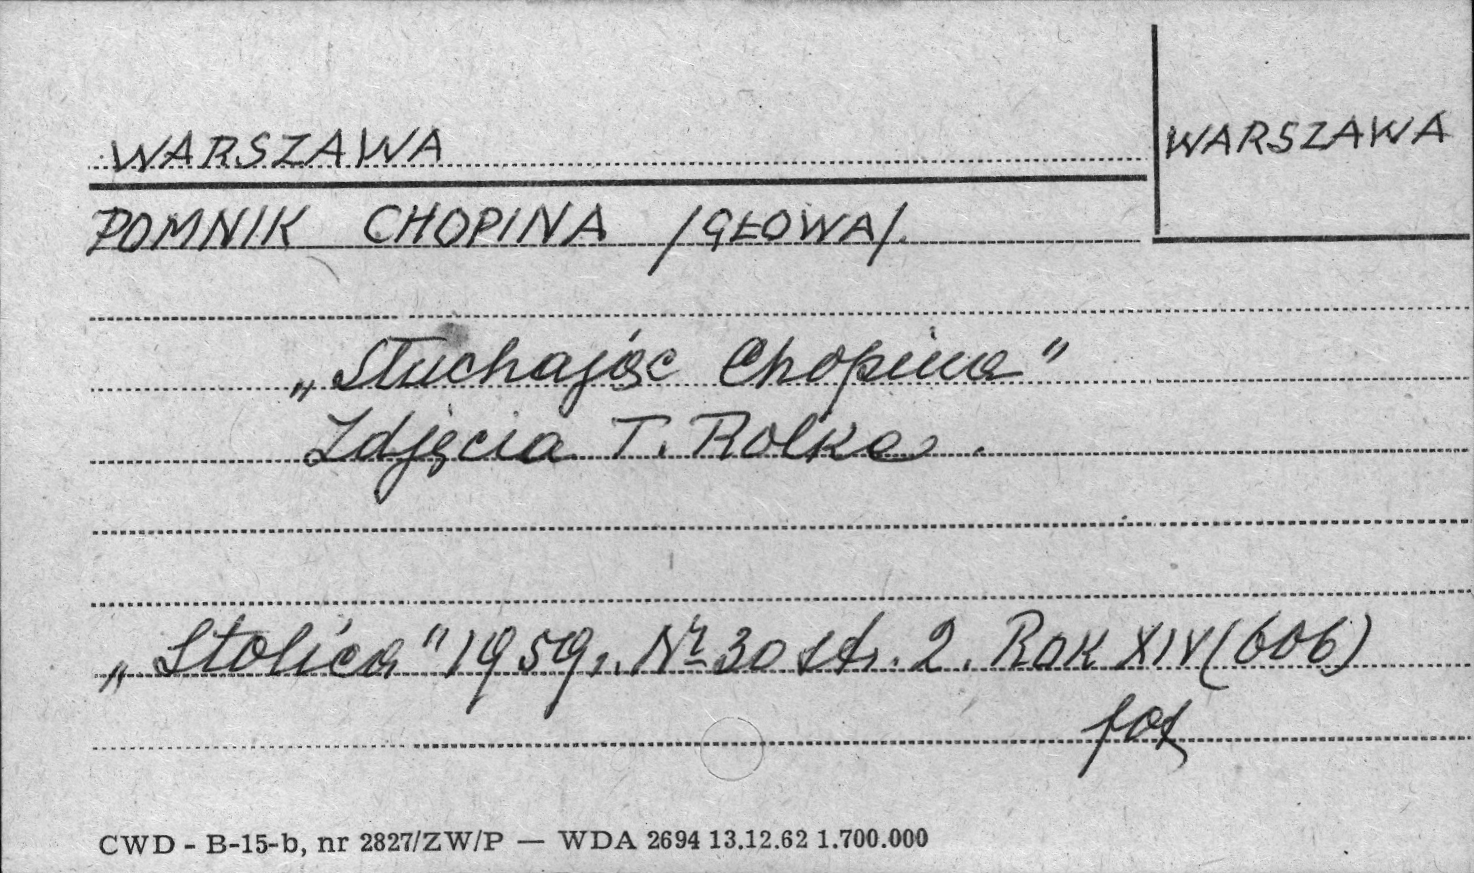 WARSZAWA
WARSZAWA
POMNIK CHOPINA /GŁOWA/.
„Słuchając Chopina"
Zdjęcia T. Rolke.
„Stolica" 1959r. Nr 30 str. 2. Rok XIV (606)
fot
CWD - B-15-b, nr 2827/ZW/P — WDA 2694 13.12.62 1.700.000